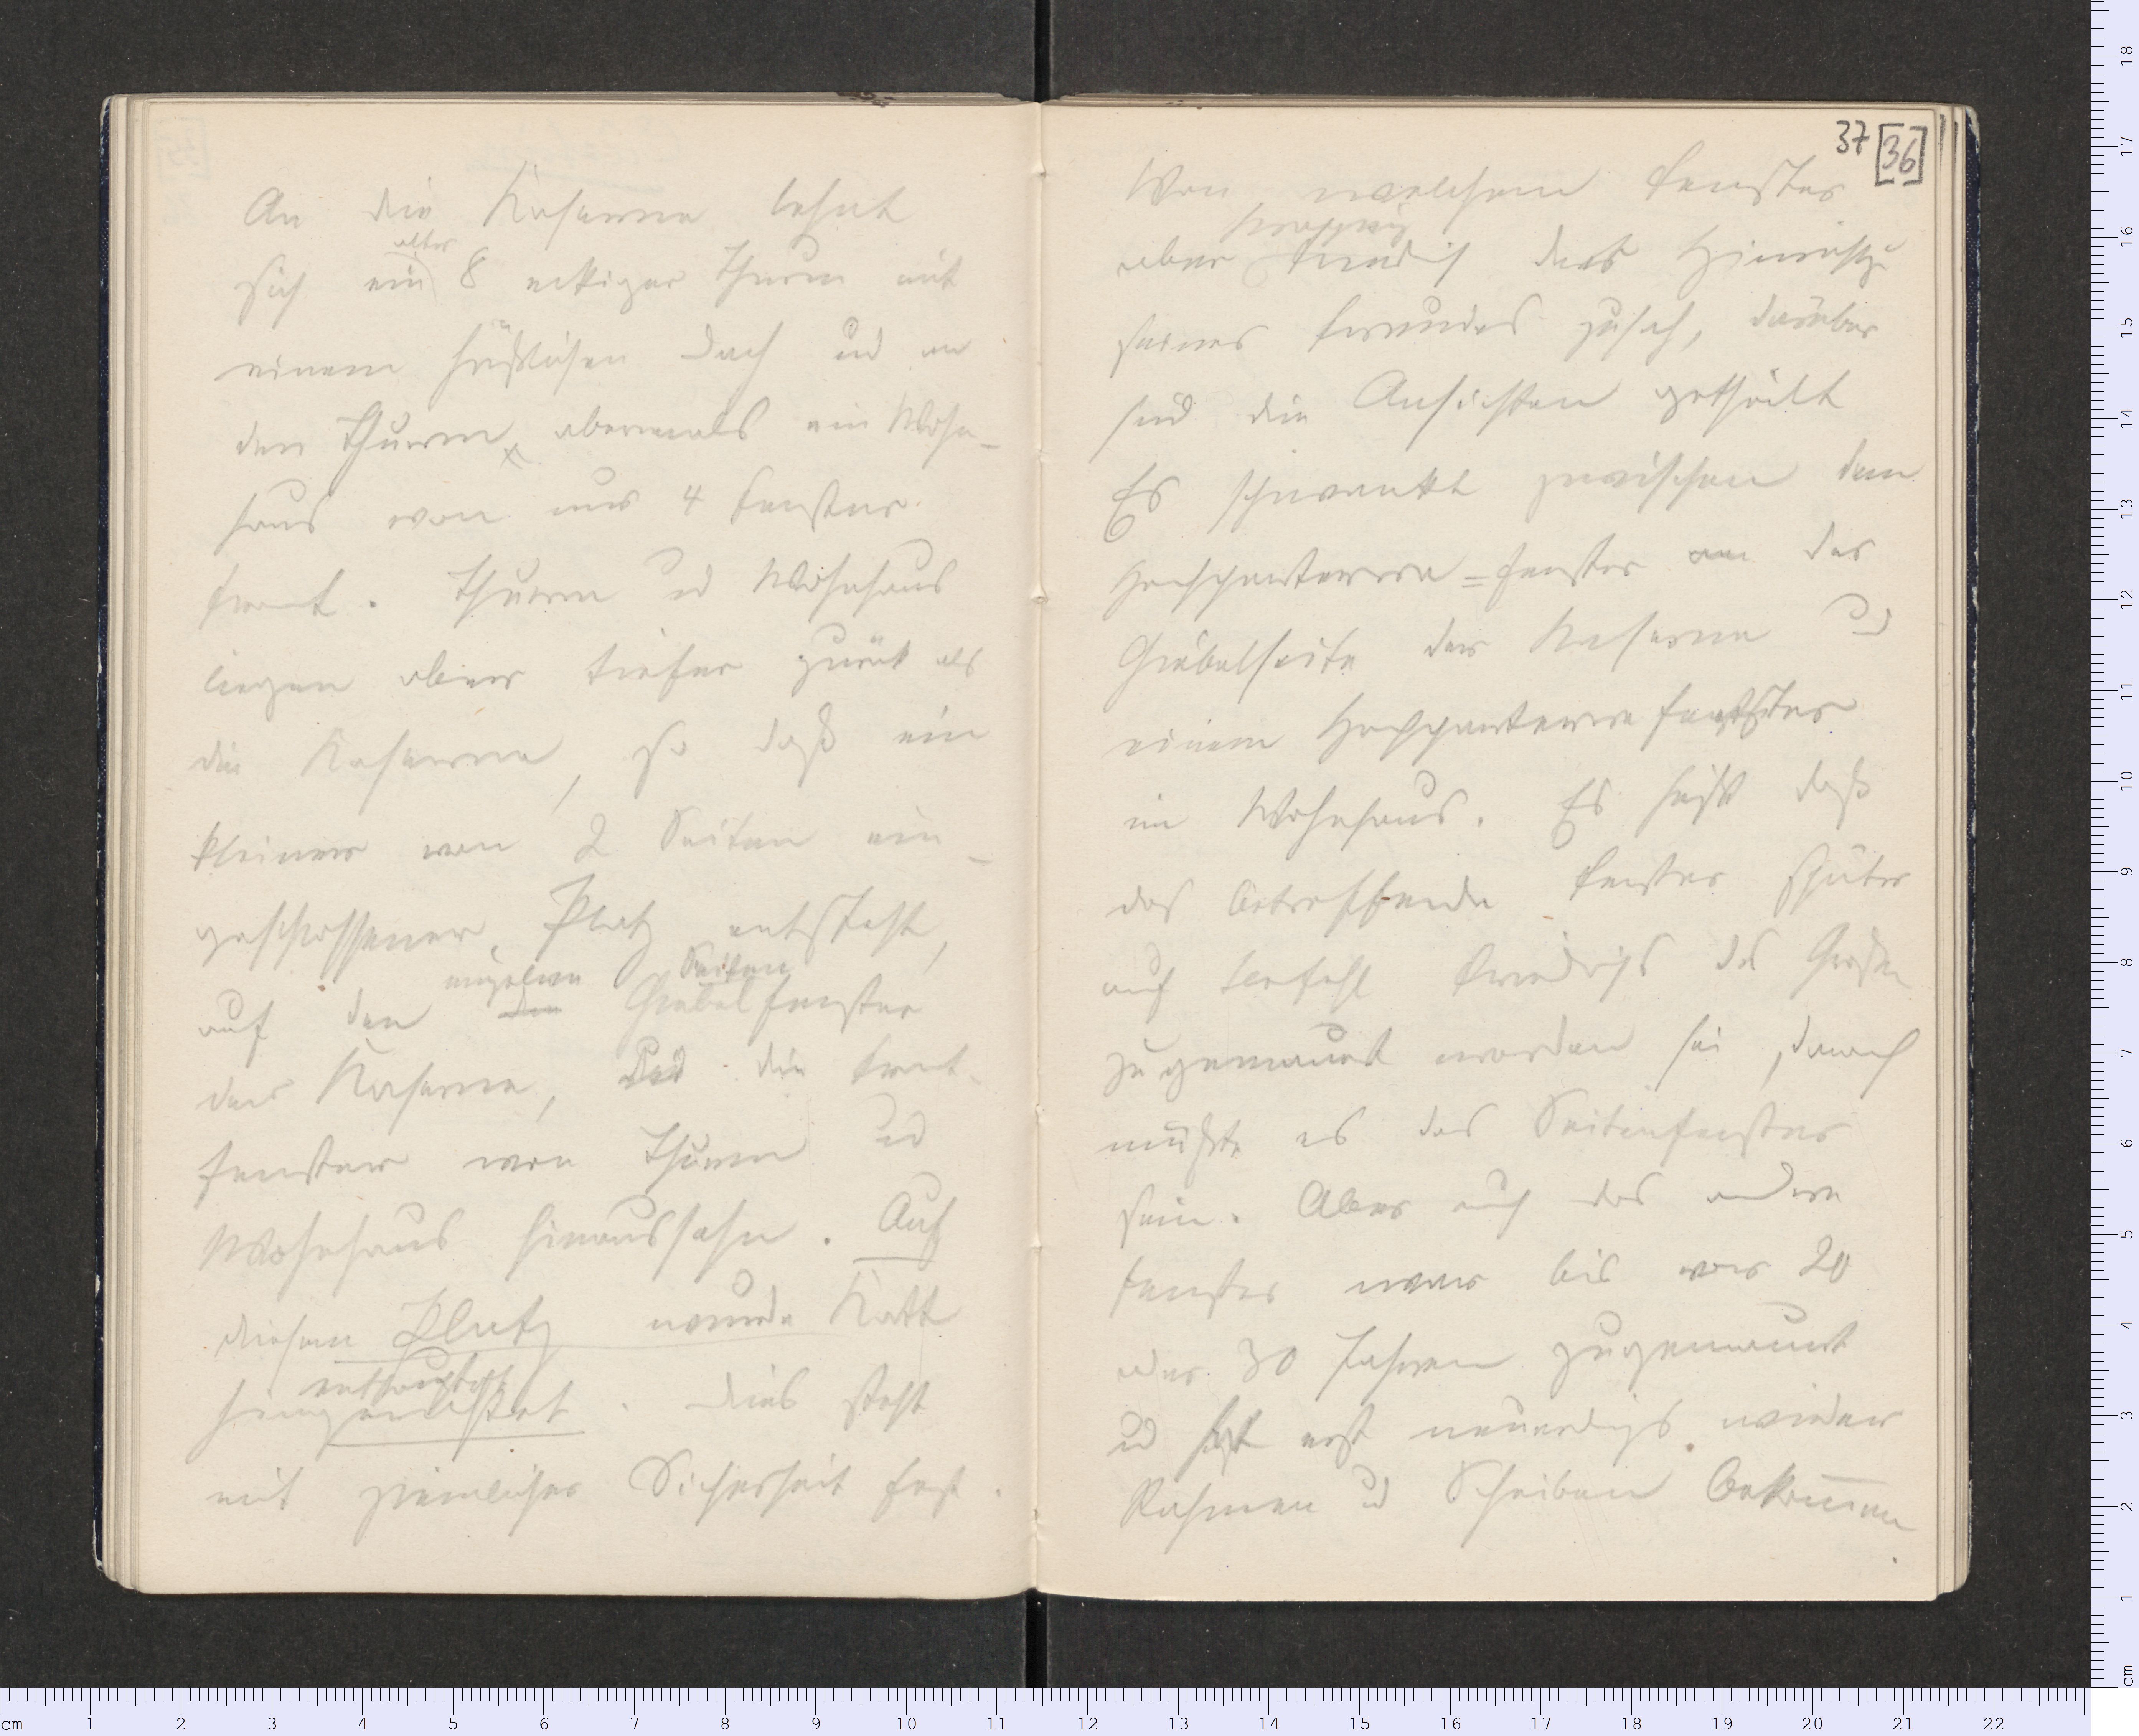 An die Kaserne lehnt
sich ein alter 8 eckiger Thurm mit
einem häßlichen Dach und an
den Thurm abermals ein Wohn-
haus von nur 4 Fenster
Front. Thurm und Wohnhaus
liegen aber tiefer zurück als
die Kaserne, so daß ein
kleiner von 2 Seiten ein-
geschlossener Platz entsteht,
einzelnen Seiten
auf den die Giebelfenster
der Kaserne, und die Front-
fenster von Thurm und
Wohnhaus hinaussehn. Auf
diesem Platz wurde Katt
enthauptet
hingerichtet. Dies steht
mit ziemlicher Sicherheit fest.
37 [36]
Von welchem Fenster
Kronprinz
aber Friedrich der Hinrichtg
seines Freundes zusah, darüber
sind die Ansichten getheilt
Es schwankt zwischen dem
Hochparterre=Fenster an der
Giebelseite der Kaserne und
einem Hochparterre Fenster
im Wohnhaus. Es heißt daß
das betreffende Fenster später
auf Befehl Friedrichs des Großen
zugemauert worden sei, danach
müßte es das Seitenfenster
sein. Aber auch das andre
Fenster war bis vor 20
oder 30 Jahren zugemauert
und hat erst neuerdings wieder
Rahmen und Scheiben bekommen
.